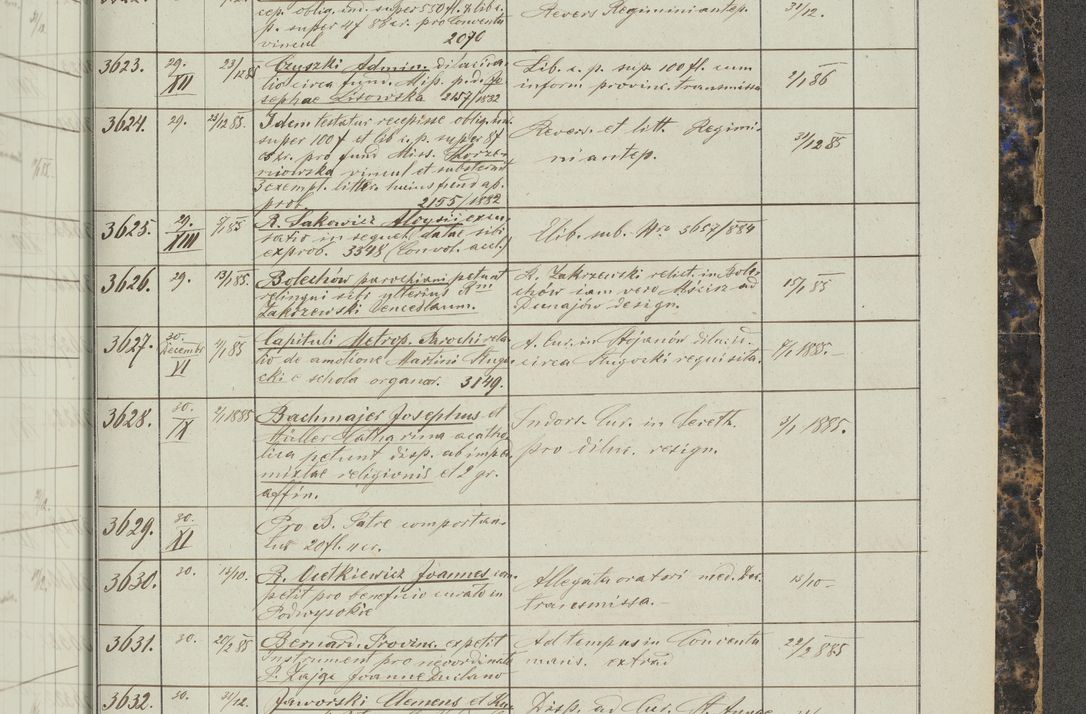 cep. oblig. un. super 550 fl. & lib. c.
p. super 4 f 88 cr. pro Conventu
vincul 2070
Revers Regiminiantep.
31/12.
3623. 29. XII 23/12 85
Czuszki Admin: dilucida-
tio circa fund. Miss. p. d. Jo
sephae Lisowska 2157/1882
Lib. c. p. sup. 100 fl. cum
inform provinc. transmissa
2/1 86
3624. 29. 23/12 85.
Idem testatur recepisse oblig. un.
super 100 f et lib c. p. super 8 f
pro fund Miss. Korze
niowska vincul et substernit
3 exempl. litter. huius fund ap.
prob. 2155/1882
Revers. et litt. Regimi-
niantep.
31/12 85
3625. 29. XIII
R. Sakowicz Aloysii excu
satio in sequel. datae sibi
exprob. 3348 (Convol. act.)
Elib. sub. Nro 3657/884
3626. 29. 13/1 85.
Bolechów parochiani petunt
relinqui sibi ulterius Rm
Zakrzewski Venceslaum.
R. Zakrzewski relict. in Bole-
chów iam vero Mścisz ad
Dunajów design.
15/1 85
3627. 30. Decembr VI 2/1 85
Capituli Metrop. Parochi rela-
tio de amotione Martini Rugo
cki e schola organar. 3149.
A. Cur. in Stojanów diluc.
circa Rugocki requisita.
4/1 1885.
3628. 30. IX 2/1 1885
Bachmajer Josephus et
Müller Catharina acatho
lica petunt disp. ab imped
mixtae religionis et 2 gr.
affin.
Indors. Cur. in Sereth.
pro diluc. resign.
3/1 1885.
3629. 30. XI
Pro D. Patre comportan-
tur 20 fl.
3630. 30. 15/10.
R. Cietkiewicz Joannes com
petit pro beneficio curato in
Podwysokie
Allegata oratori med. Dec.
transmissa.
15/10
3631. 30. 20/2 85
Bernard. Provinc. expetit
instrument pro neoordinato
P. Zajge Joanne Duclano
Ad tempus in Conventu
mans. extrad
22/2 885
3632. 30. 31/12.
Jaworski Clemens et
Disp. ad Cur. St. Annae